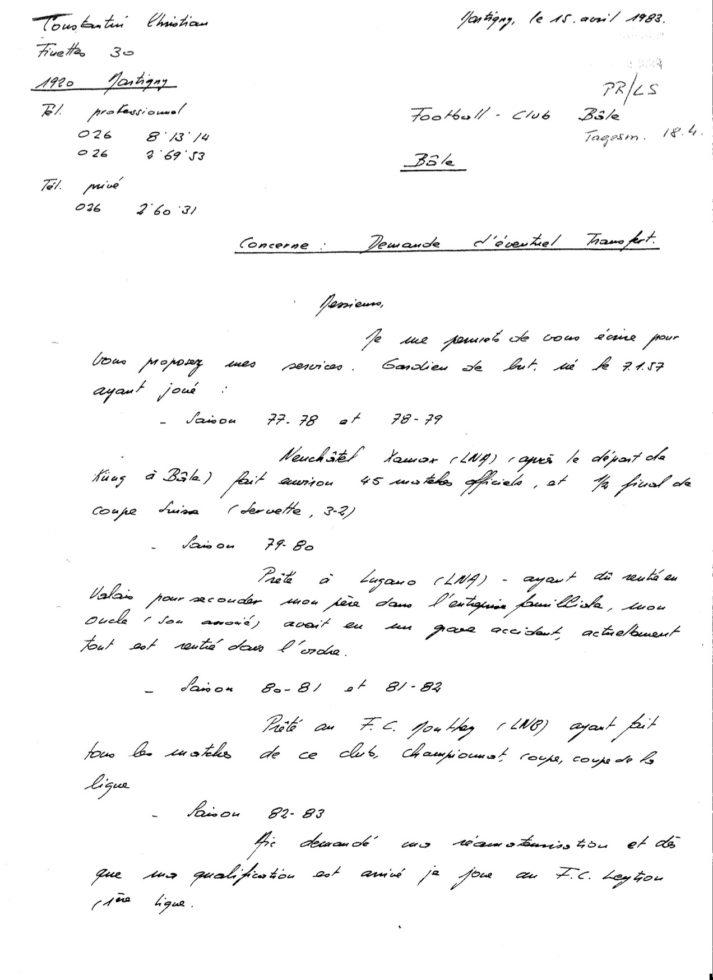 Constantin Christian
Martigny, le 15. avril 1983.
Finettes 30
1920 Martigny
PR/LS
Tél. professionnel
Football-Club Bâle
026 8'13'14
Tagesm. 18.4.
026 2'69'53
Bâle
Tél. privé
026 2'60'31
Concerne : Demande d'éventuel Transfert.
Messieurs,
Je me permets de vous écrire pour
vous proposez mes services. Gardien de but. né le 7.1.57
ayant joué :
- Saison 77-78 et 78-79
Neuchâtel Xamax (LNA) (après le départ de
Küng à Bâle) fait environ 45 matches officiels, et 1/2 final de
coupe Suisse (Servette, 3-2)
- Saison 79-80
Prêté à Lugano (LNA) - ayant dû rentré en
Valais pour seconder mon père dans l'entreprise familliale, mon
oncle (son associé) avait eu un grave accident, actuellement
tout est rentré dans l'ordre.
- Saison 80-81 et 81-82
Prêté au F.C. Monthey (LNB) ayant fait
tous les matches de ce club, championnat, coupe, coupe de la
ligue
- Saison 82-83
Aie demandé ma réamateurisation et dès
que ma qualification est arrivé je joue au F.C. Leytron
(1ère ligue.